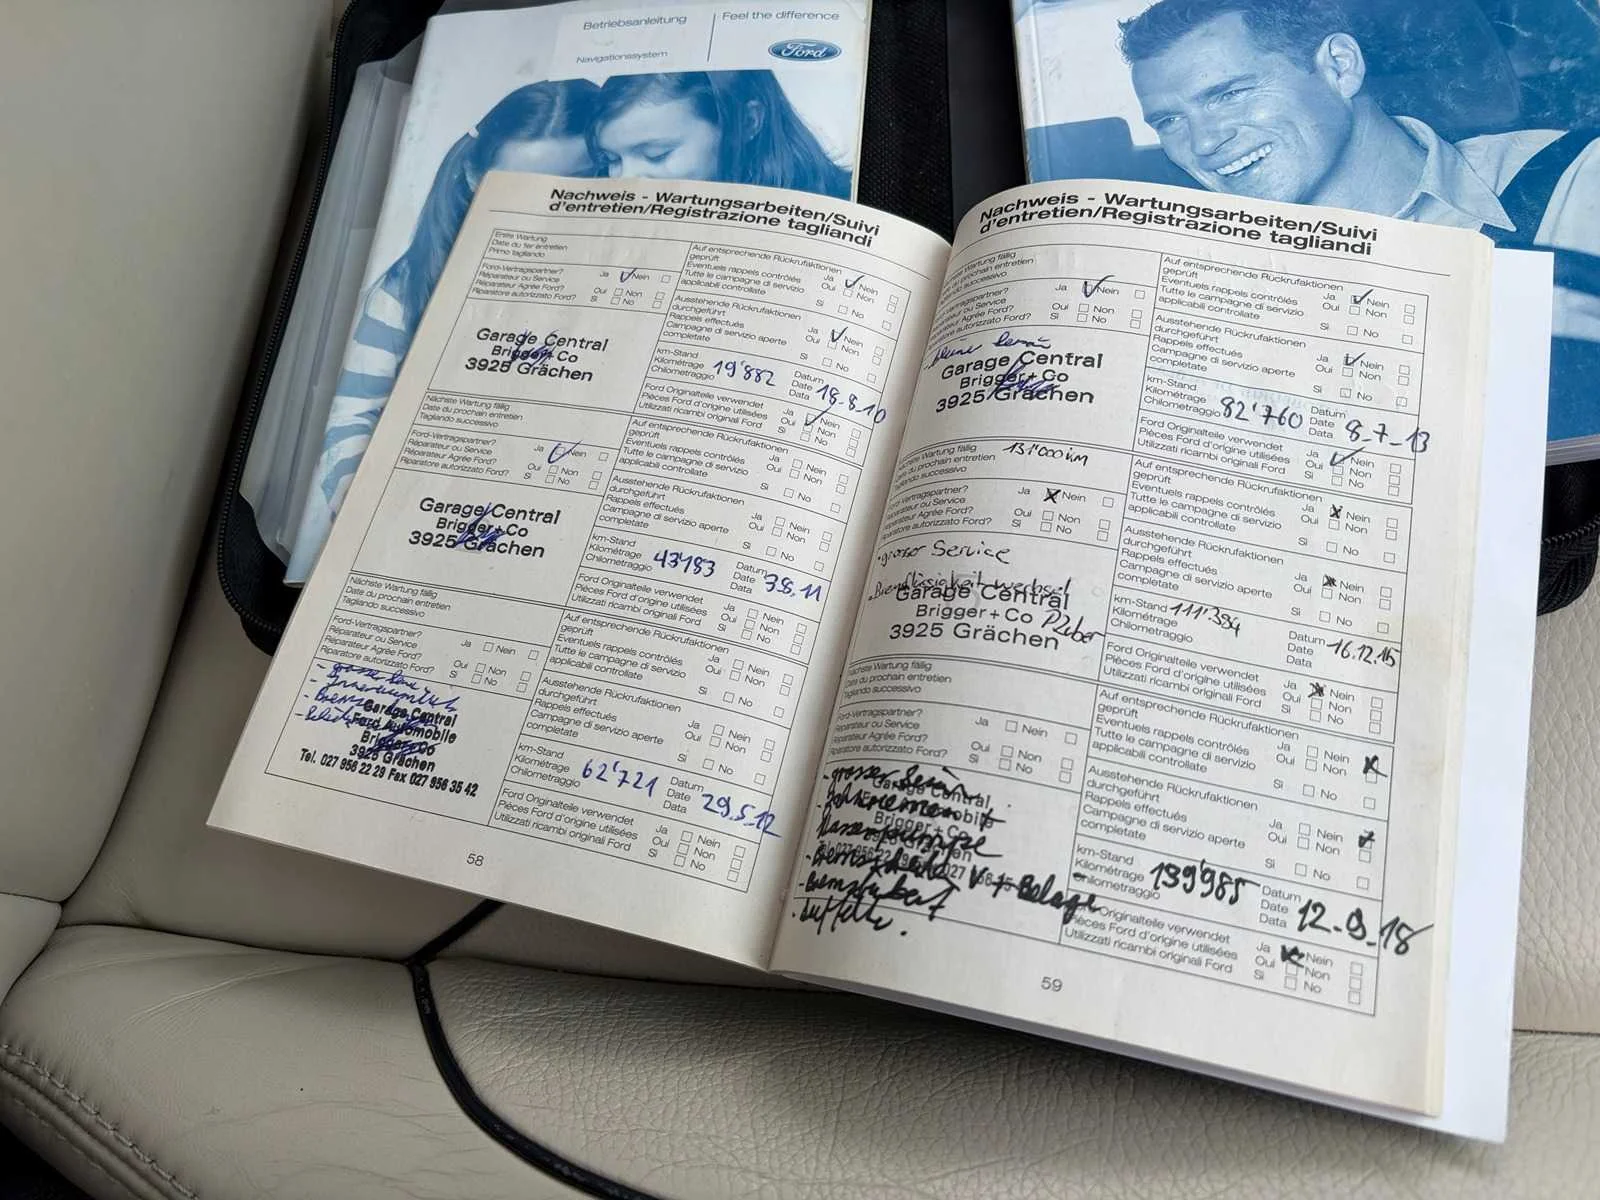 Betriebsanleitung
Feel the difference
Navigationssystem
Ford
Nachweis - Wartungsarbeiten/Suivi
d'entretien/Registrazione tagliandi
Erste Wartung
Date du 1er entretien
Primo tagliando
Ford-Vertragspartner? Ja Nein
Réparateur ou Service Oui Non
Réparateur Agrée Ford? Si No
Riparatore autorizzato Ford?
Garage Central
Brigger+Co
3925 Grächen
Auf entsprechende Rückrufaktionen
geprüft Ja Nein
Eventuels rappels contrôlés Oui Non
Tutte le campagne di servizio
applicabili controllate Si No
Ausstehende Rückrufaktionen
durchgeführt Ja Nein
Rappels effectués Oui Non
Campagne di servizio aperte
completate Si No
km-Stand
Kilométrage 19'882
Chilometraggio
Datum
Date 18.8.10
Data
Ford Originalteile verwendet Ja Nein
Pièces Ford d'origine utilisées Oui Non
Utilizzati ricambi originali Ford Si No
Nächste Wartung fällig
Date du prochain entretien
Tagliando successivo
Ford-Vertragspartner? Ja Nein
Réparateur ou Service Oui Non
Réparateur Agrée Ford? Si No
Riparatore autorizzato Ford?
Garage Central
Brigger+Co
3925 Grächen
Auf entsprechende Rückrufaktionen
geprüft Ja Nein
Eventuels rappels contrôlés Oui Non
Tutte le campagne di servizio
applicabili controllate Si No
Ausstehende Rückrufaktionen
durchgeführt Ja Nein
Rappels effectués Oui Non
Campagne di servizio aperte
completate Si No
km-Stand
Kilométrage 43'183
Chilometraggio
Datum
Date 3.8.11
Data
Ford Originalteile verwendet Ja Nein
Pièces Ford d'origine utilisées Oui Non
Utilizzati ricambi originali Ford Si No
Nächste Wartung fällig
Date du prochain entretien
Tagliando successivo
Ford-Vertragspartner? Ja Nein
Réparateur ou Service Oui Non
Réparateur Agrée Ford? Si No
Riparatore autorizzato Ford?
Garage Central
Ford Automobile
Brigger+Co
3925 Grächen
Tel. 027 956 22 29 Fax 027 956 35 42
Auf entsprechende Rückrufaktionen
geprüft Ja Nein
Eventuels rappels contrôlés Oui Non
Tutte le campagne di servizio
applicabili controllate Si No
Ausstehende Rückrufaktionen
durchgeführt Ja Nein
Rappels effectués Oui Non
Campagne di servizio aperte
completate Si No
km-Stand
Kilométrage 62'721
Chilometraggio
Datum
Date 29.5.12
Data
Ford Originalteile verwendet Ja Nein
Pièces Ford d'origine utilisées Oui Non
Utilizzati ricambi originali Ford Si No
58
Nachweis - Wartungsarbeiten/Suivi
d'entretien/Registrazione tagliandi
Wartung fällig
prochain entretien
successivo
Ford-Vertragspartner? Ja Nein
Réparateur ou Service Oui Non
Réparateur Agrée Ford? Si No
Riparatore autorizzato Ford?
Garage Central
Brigger+Co
3925 Grächen
Auf entsprechende Rückrufaktionen
geprüft Ja Nein
Eventuels rappels contrôlés Oui Non
Tutte le campagne di servizio
applicabili controllate Si No
Ausstehende Rückrufaktionen
durchgeführt Ja Nein
Rappels effectués Oui Non
Campagne di servizio aperte
completate Si No
km-Stand
Kilométrage 82'760
Chilometraggio
Datum
Date 8-7-13
Data
Ford Originalteile verwendet Ja Nein
Pièces Ford d'origine utilisées Oui Non
Utilizzati ricambi originali Ford Si No
Nächste Wartung fällig 131'000 km
Date du prochain entretien
Tagliando successivo
Ford-Vertragspartner? Ja Nein
Réparateur ou Service Oui Non
Réparateur Agrée Ford? Si No
Riparatore autorizzato Ford?
• grosser Service
• Bremsflüssigkeit wechsel
Garage Central
Brigger+Co
3925 Grächen
Auf entsprechende Rückrufaktionen
geprüft Ja Nein
Eventuels rappels contrôlés Oui Non
Tutte le campagne di servizio
applicabili controllate Si No
Ausstehende Rückrufaktionen
durchgeführt Ja Nein
Rappels effectués Oui Non
Campagne di servizio aperte
completate Si No
km-Stand 111'384
Kilométrage
Chilometraggio
Datum
Date 16.12.15
Data
Ford Originalteile verwendet Ja Nein
Pièces Ford d'origine utilisées Oui Non
Utilizzati ricambi originali Ford Si No
Nächste Wartung fällig
Date du prochain entretien
Tagliando successivo
Ford-Vertragspartner? Ja Nein
Réparateur ou Service Oui Non
Réparateur Agrée Ford? Si No
Riparatore autorizzato Ford?
- grosser
Garage Central
Brigger+Co
Wasserpumpe
- Bremsscheiben V + Beläge
Auf entsprechende Rückrufaktionen
geprüft Ja Nein
Eventuels rappels contrôlés Oui Non
Tutte le campagne di servizio
applicabili controllate Si No
Ausstehende Rückrufaktionen
durchgeführt Ja Nein
Rappels effectués Oui Non
Campagne di servizio aperte
completate Si No
km-Stand
Kilométrage 139'985
Chilometraggio
Datum
Date 12-9-18
Data
Ford Originalteile verwendet Ja Nein
Pièces Ford d'origine utilisées Oui Non
Utilizzati ricambi originali Ford Si No
59